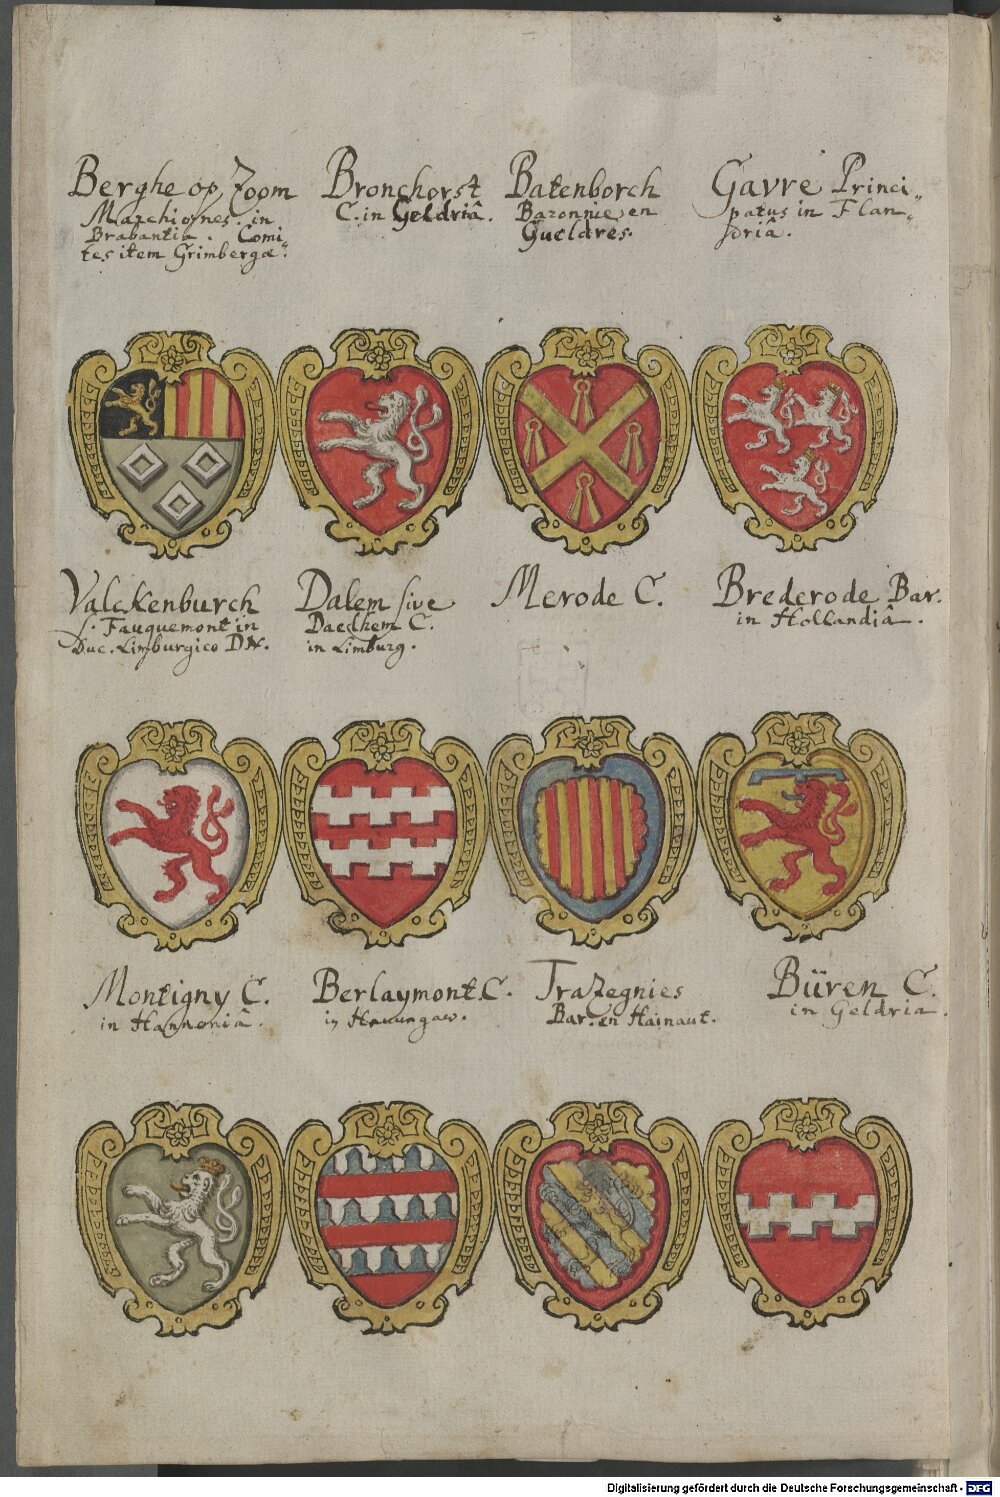 Berghe op Zoom
Marchiones. in
Brabantia. Comi„
tes item Grimbergæ.
Bronchorst
C. in Geldriâ.
Batenborch
Baronnie en
Gueldres.
Gavre Princi„
patus in Flan„
driâ.
Valckenburch
s. Fauquemont in
Duc. Limburgico
Dalem sive
Daelhem C.
in Limburg.
Merode C.
Brederode Bar.
in Hollandiâ.
Montigny C.
in Hannoniâ.
Berlaymont C.
in
Trazegnies
Bar. en Hainaut.
Büren C.
in Geldria.
Digitalisierung gefördert durch die Deutsche Forschungsgemeinschaft - DFG